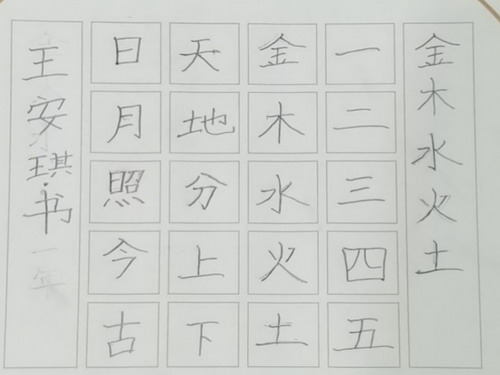 金木水火土
一二三四五
金木水火土
天地分上下
日月照今古
王安琪书
一年